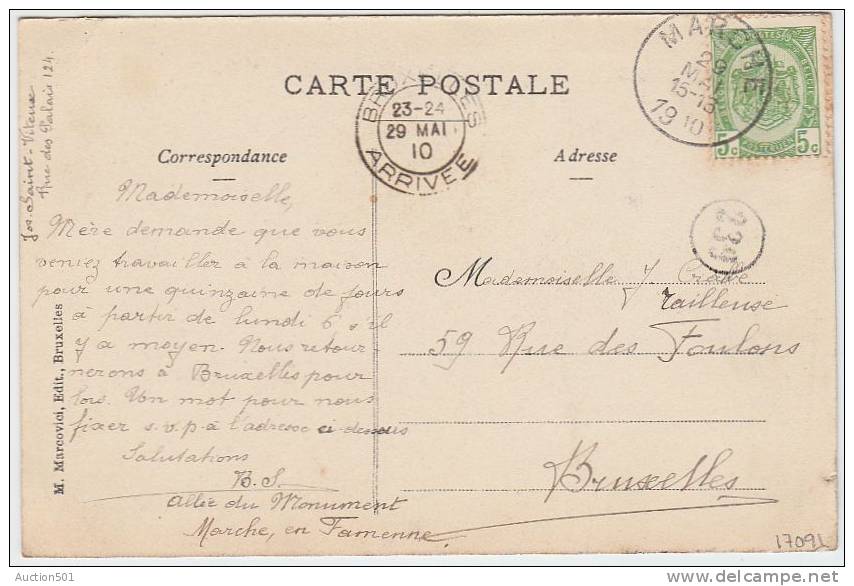 CARTE POSTALE
Correspondance
Adresse
MARCHE
29
MAI
15-15
1910
BRUXELLES
23-24
29 MAI
10
ARRIVEE
5c 5c
Jos. Saint-Viteux
Rue des Palais 124
Mademoiselle,
Mère demande que vous
veniez travailler à la maison
pour une quinzaine de jours
à partir de lundi 6, s'il
y a moyen. Nous retour-
nerons à Bruxelles pour
lors. Un mot pour nous
fixer s.v.p. à l'adresse ci-dessous
Salutations
B.S.
Allée du Monument
Marche, en Famenne.
Mademoiselle J.
Tailleuse
59 Rue des Foulons
Bruxelles
M. Marcovici, Edit., Bruxelles
17091
Auction501
delcampe.net